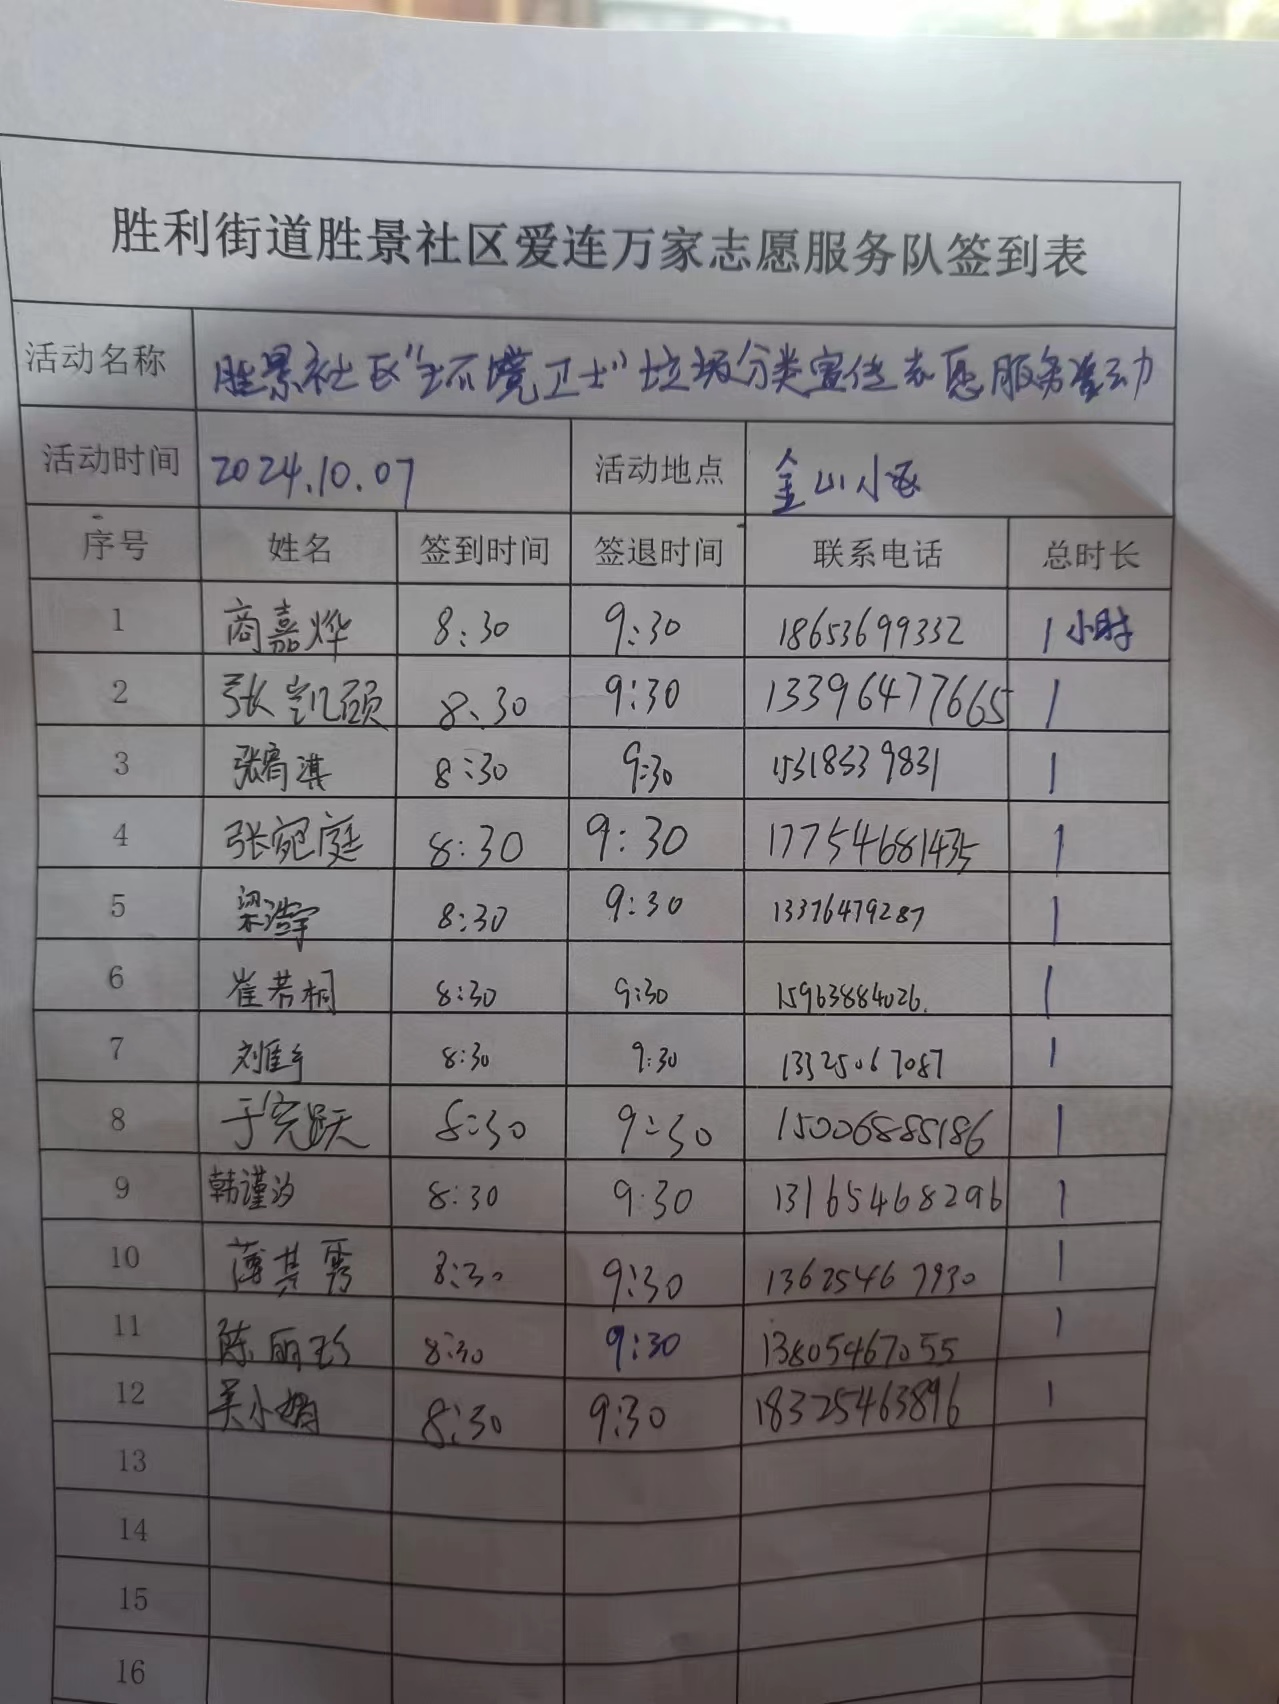 胜利街道胜景社区爱连万家志愿服务队签到表
活动名称 胜景社区"环境卫士"垃圾分类宣传志愿服务活动
活动时间 2024.10.07 活动地点 金山小区
序号 姓名 签到时间 签退时间 联系电话 总时长
1 商嘉烨 8:30 9:30 18653699332 1小时
2 张凯硕 8:30 9:30 13396477665 1
3 张宥淇 8:30 9:30 15318339831 1
4 张宛庭 8:30 9:30 17754681435 1
5 梁浩宇 8:30 9:30 13376479287 1
6 崔若桐 8:30 9:30 15963884026. 1
7 8:30 9:30 13325067087 1
8 于宪跃 8:30 9:30 15006888186 1
9 韩谨汐 8:30 9:30 13165468296 1
10 薄其秀 8:30 9:30 13625467930 1
11 陈丽珍 8:30 9:30 13805467055 1
12 吴小娟 8:30 9:30 18325463896 1
13
14
15
16